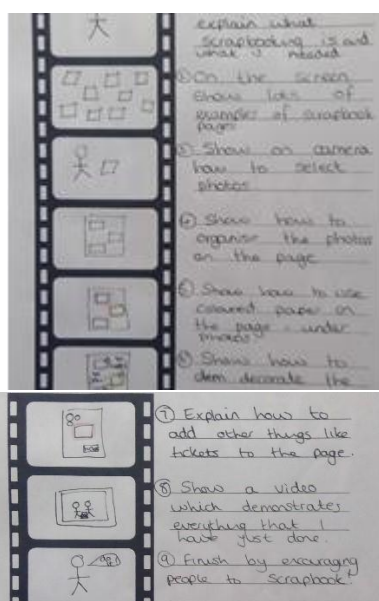 explain what
scrapbooking is and
what is needed
② On the screen
show lots of
examples of scrapbook
pages
③ Show on camera
how to select
photos
④ Show how to
organise the photos
on the page
⑤ Show how to use
coloured paper on
the page - under
photos
Show how to
dem decorate the
⑦ Explain how to
add other things like
tickets to the page.
⑧ Show a video
which demonstrates
everything that I
have just done.
⑨ Finish by encouraging
people to Scrapbook!